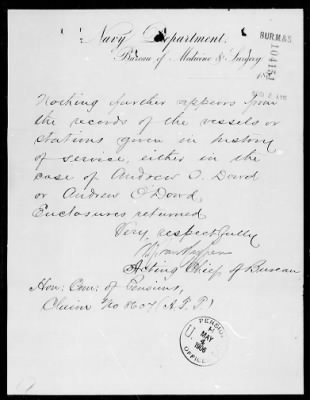 Navy Department,
BUR. M & S
Bureau of Medicine & Surgery
104151
Nothing further appears from
the records of the vessels or
stations given in history
of service, either in the
case of Andrew O. Dowd
or Andrew O'Dowd.
Enclosures returned
Very respectfully
Acting Chief of Bureau
Hon: Com: of Pensions,
Claim No 8607 (A.F.F.)
U.
MAY
4
1906
OFFICE